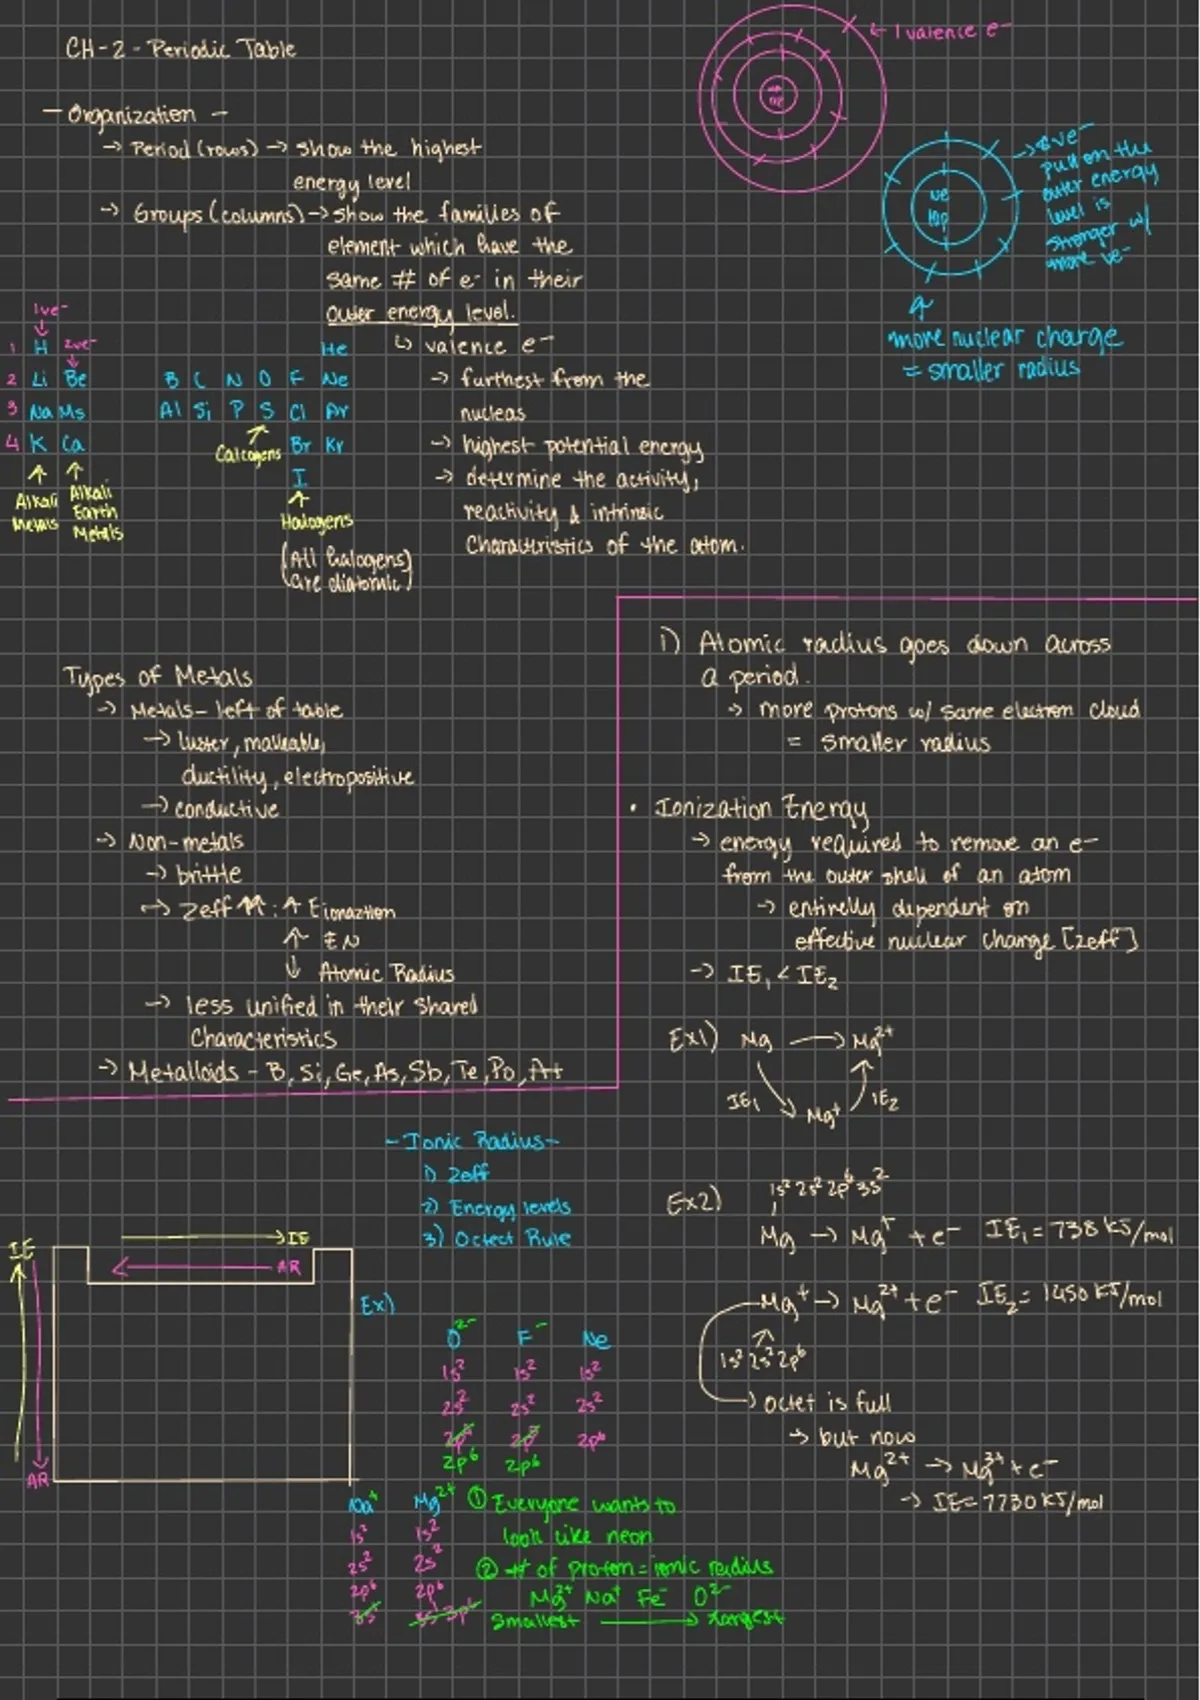 CH-2 - Periodic Table
← 1 valence e-
- Organization -
→ Period (rows) → show the highest
energy level
→ Groups (columns) → show the families of
element which have the
same # of e- in their
outer energy level.
↳ valence e-
→ furthest from the
nucleas
→ highest potential energy
→ determine the activity,
reactivity & intrinsic
Characteristics of the atom.
ve
10p
pull on the
outer energy
level is
stronger w/
more ve-
more nuclear charge
= smaller radius
1ve-
1 H 2ve- He
2 Li Be B C N O F Ne
3 Na Ms Al Si P S Cl Ar
4 K Ca Calcogens Br Kr
I
Alkali
Metals
Alkali
Earth
Metals
Halogens
(All halogens
are diatomic)
Types of Metals
→ Metals - left of table
→ luster, malleable,
ductility, electropositive
→ conductive
→ Non-metals
→ brittle
→ Zeff ↑↑ : ↑ Eionaztion
↑ EN
↓ Atomic Radius
→ less unified in their shared
Characteristics
→ Metalloids - B, Si, Ge, As, Sb, Te, Po, At
1) Atomic radius goes down across
a period.
→ more protons w/ same electron cloud
= smaller radius
• Ionization Energy
→ energy required to remove an e-
from the outer shell of an atom
→ entirelly dependent on
effective nuclear charge [Zeff]
→ IE₁ < IE₂
Ex1) Mg → Mg²⁺
IE₁ Mg⁺ IE₂
Ex2) 1s² 2s² 2p⁶ 3s²
Mg → Mg⁺ + e- IE₁ = 738 kJ/mol
Mg⁺ → Mg²⁺ + e- IE₂ = 1450 kJ/mol
1s² 2s² 2p⁶
→ Octet is full
→ but now
Mg²⁺ → Mg³⁺ + e-
→ IE = 7730 kJ/mol
- Ionic Radius -
1) Zeff
2) Energy levels
3) Octect Rule
IE → IE
← AR
AR
Ex)
O²⁻ F⁻ Ne
1s² 1s² 1s²
2s² 2s² 2s²
2p⁴ 2p⁵ 2p⁶
2p⁶ 2p⁶
Na⁺ Mg²⁺
1s² 1s²
2s² 2s²
2p⁶ 2p⁶
① Everyone wants to
look like neon
② # of proton = ionic radius
Mg²⁺ Na⁺ Fe⁻ O²⁻
Smallest → Largest